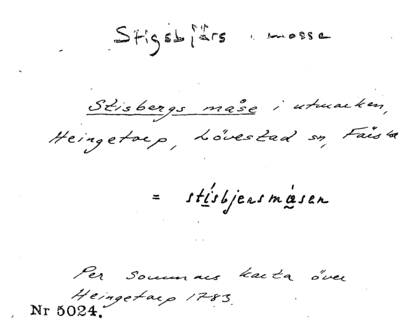 Stigsbjärs mosse
Stisbergs måse i utmarken,
Heingetorp, Lövestad sn, Färs hd
= stísbjersmåsen
Per Sommars karta över
Heingetorp 1783.
Nr 5024.